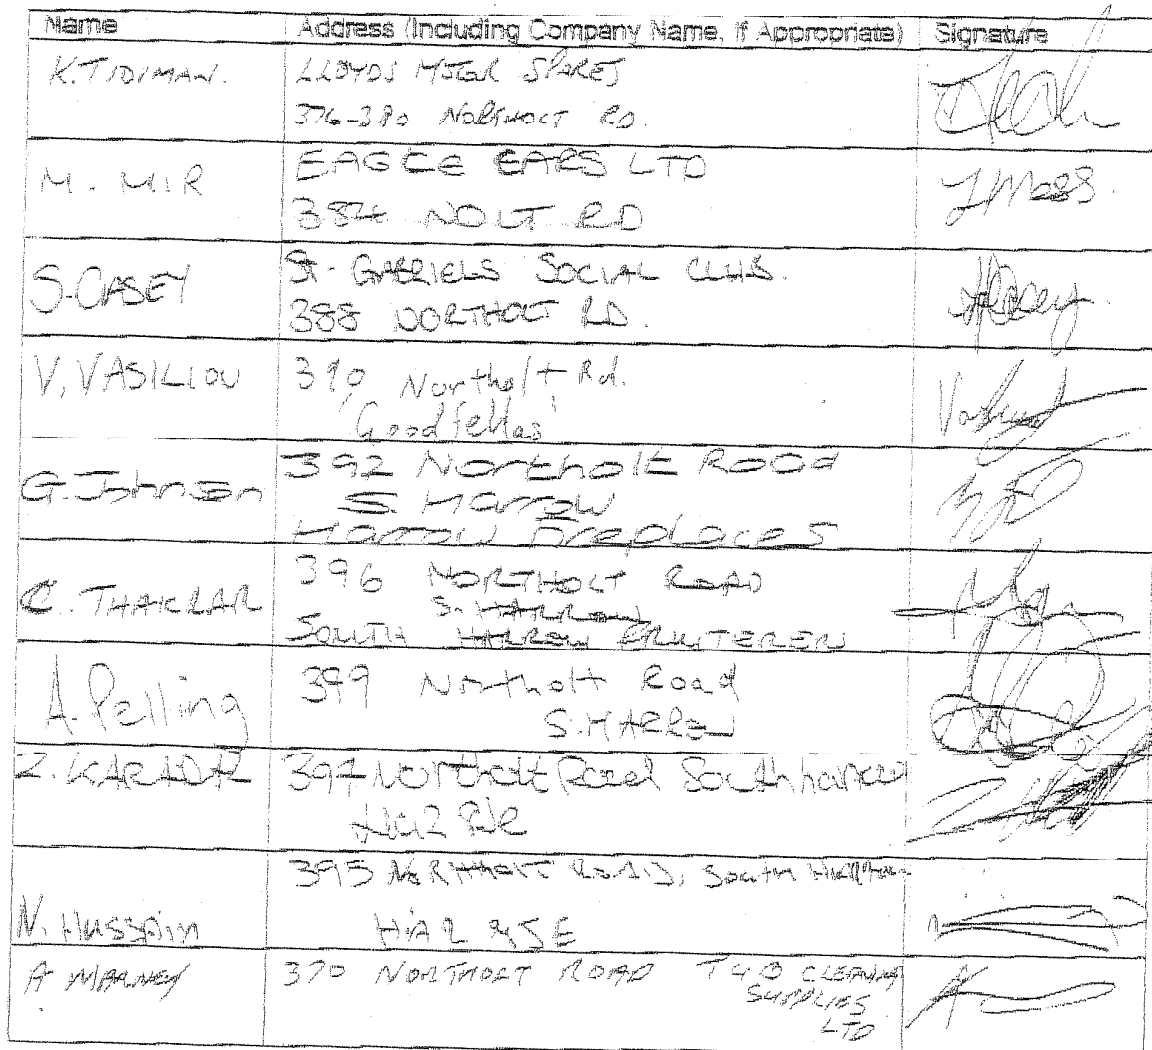 Name Address (Including Company Name, If Appropriate) Signature
K. TIDIMAN. LLOYDS MOTOR SPARES
376-380 NORTHOLT RD.
M. MIR EAGLE CARS LTD
384 NOLT RD
S. CASEY St. GABRIELS SOCIAL CLUB.
388 NORTHOLT RD.
V. VASILIOU 390 Northolt Rd.
'Goodfellas'
G. Johnson 392 Northolt Road
S. Harrow
Harrow Fireplaces
C. THAKRAR 396 NORTHOLT ROAD
S. HARROW
SOUTH HARROW
A. Pelling 399 Northolt Road
S. HARROW
Z. 397 Northolt Road South harrow
N. Hussain 395 NORTHOLT ROAD, South Harrow
HA2
A MARNEY 370 NORTHOLT ROAD T & B CLEANING
SUPPLIES
LTD